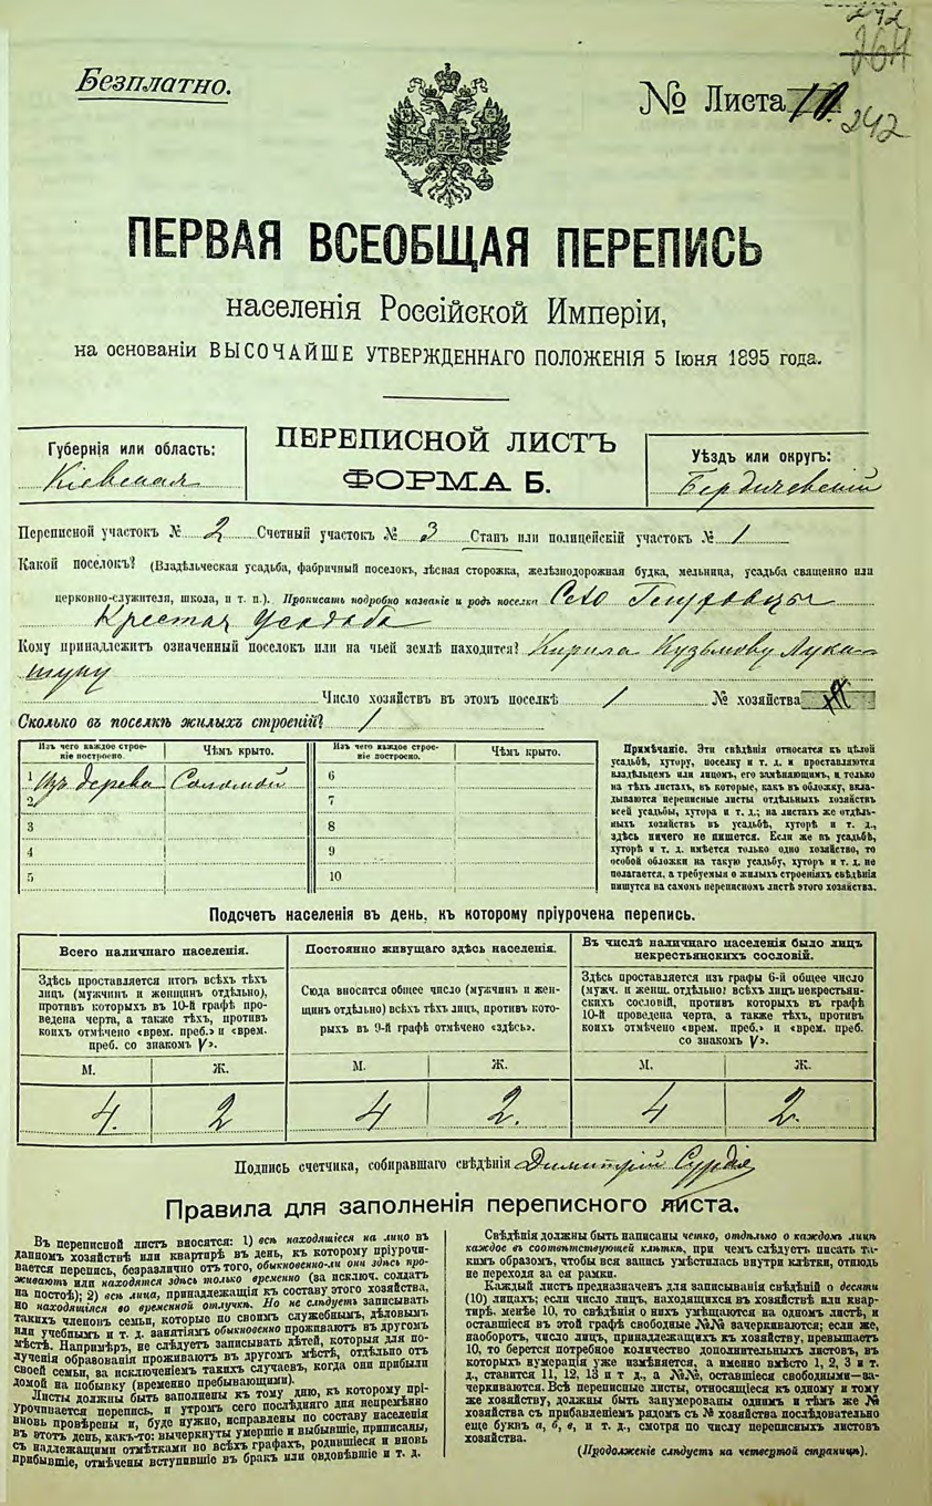 242
264
Безплатно.
№ Листа 10.
242
ПЕРВАЯ ВСЕОБЩАЯ ПЕРЕПИСЬ
населенія Россійской Имперіи,
на основаніи ВЫСОЧАЙШЕ УТВЕРЖДЕННАГО ПОЛОЖЕНІЯ 5 Іюня 1895 года.
ПЕРЕПИСНОЙ ЛИСТЪ
ФОРМА Б.
Губернія или область:
Кіевская
Уѣздъ или округъ:
Бердичевскій
Переписной участокъ № 2 Счетный участокъ № 3 Станъ или полицейскій участокъ № 1
Какой поселокъ? (Владѣльческая усадьба, фабричный поселокъ, лѣсная сторожка, желѣзнодорожная будка, мельница, усадьба священно или
церковно-служителя, школа, и т. п.). Прописать подробно названіе и родъ поселка Село
Крестян Усадьба
Кому принадлежитъ означенный поселокъ или на чьей землѣ находится? Кирила Кузьмову Лука-
шуку
Число хозяйствъ въ этомъ поселкѣ 1 № хозяйства
Сколько въ поселкѣ жилыхъ строеній? 1
Изъ чего каждое строе-
ніе построено.
Чѣмъ крыто.
1 Изъ дерева Соломой
2
3
4
5
Изъ чего каждое строе-
ніе построено.
Чѣмъ крыто.
6
7
8
9
10
Примѣчаніе. Эти свѣдѣнія относятся къ цѣлой
усадьбѣ, хутору, поселку и т. д. и проставляются
владѣльцемъ или лицомъ, его замѣняющимъ, и только
на тѣхъ листахъ, въ которые, какъ въ обложку, вкла-
дываются переписные листы отдѣльныхъ хозяйствъ
всей усадьбы, хутора и т. д.; на листахъ же отдѣль-
ныхъ хозяйствъ въ усадьбѣ, хуторѣ и т. д.,
здѣсь ничего не пишется. Если же въ усадьбѣ,
хуторѣ и т. д. имѣется только одно хозяйство, то
особой обложки на такую усадьбу, хуторъ и т. д. не
полагается, а требуемыя о жилыхъ строеніяхъ свѣдѣнія
пишутся на самомъ переписномъ листѣ этого хозяйства.
Подсчетъ населенія въ день, къ которому пріурочена перепись.
Всего наличнаго населенія.
Здѣсь проставляется итогъ всѣхъ тѣхъ
лицъ (мужчинъ и женщинъ отдѣльно),
противъ которыхъ въ 10-й графѣ про-
ведена черта, а также тѣхъ, противъ
коихъ отмѣчено «врем. преб.» и «врем.
преб. со знакомъ V».
М. Ж.
4. 2
Постоянно живущаго здѣсь населенія.
Сюда вносится общее число (мужчинъ и жен-
щинъ отдѣльно) всѣхъ тѣхъ лицъ, противъ кото-
рыхъ въ 9-й графѣ отмѣчено «здѣсь».
М. Ж.
4 2.
Въ числѣ наличнаго населенія было лицъ
некрестьянскихъ сословій.
Здѣсь проставляется изъ графы 6-й общее число
(мужч. и женщ. отдѣльно) всѣхъ лицъ некрестьян-
скихъ сословій, противъ которыхъ въ графѣ
10-й проведена черта, а также тѣхъ, противъ
коихъ отмѣчено «врем. преб.» и «врем. преб.
со знакомъ V».
М. Ж.
4 2.
Подпись счетчика, собиравшаго свѣдѣнія Димитрій
Правила для заполненія переписного листа.
Въ переписной листъ вносятся: 1) всѣ находящіеся на лицо въ
данномъ хозяйствѣ или квартирѣ въ день, къ которому пріурочи-
вается перепись, безразлично отъ того, обыкновенно-ли они здѣсь про-
живаютъ или находятся здѣсь только временно (за исключ. солдатъ
на постоѣ); 2) всѣ лица, принадлежащія къ составу этого хозяйства,
но находящіяся во временной отлучкѣ. Но не слѣдуетъ записывать
такихъ членовъ семьи, которые по своимъ служебнымъ, дѣловымъ
или учебнымъ и т. д. занятіямъ обыкновенно проживаютъ въ другомъ
мѣстѣ. Напримѣръ, не слѣдуетъ записывать дѣтей, которыя для по-
лученія образованія проживаютъ въ другомъ мѣстѣ, отдѣльно отъ
своей семьи, за исключеніемъ такихъ случаевъ, когда они прибыли
домой на побывку (временно пребывающими).
Листы должны быть заполнены къ тому дню, къ которому прі-
урочивается перепись, и утромъ сего послѣдняго дня непремѣнно
вновь провѣрены и, буде нужно, исправлены по составу населенія
въ этотъ день, какъ-то: вычеркнуты умершіе и выбывшіе, приписаны,
съ надлежащими отмѣтками во всѣхъ графахъ, родившіеся и вновь
прибывшіе, отмѣчены вступившіе въ бракъ или овдовѣвшіе и т. д.
Свѣдѣнія должны быть написаны четко, отдѣльно о каждомъ лицѣ
каждое въ соотвѣтствующей клѣткѣ, при чемъ слѣдуетъ писать та-
кимъ образомъ, чтобы вся запись умѣстилась внутри клѣтки, отнюдь
не переходя за ея рамки.
Каждый листъ предназначенъ для записыванія свѣдѣній о десяти
(10) лицахъ; если число лицъ, находящихся въ хозяйствѣ или квар-
тирѣ, менѣе 10, то свѣдѣнія о нихъ умѣщаются на одномъ листѣ, и
оставшіеся въ этой графѣ свободные №№ зачеркиваются; если же,
наоборотъ, число лицъ, принадлежащихъ къ хозяйству, превышаетъ
10, то берется потребное количество дополнительныхъ листовъ, въ
которыхъ нумерація уже измѣняется, а именно вмѣсто 1, 2, 3 и т.
д., ставится 11, 12, 13 и т д., а №№, оставшіеся свободными—за-
черкиваются. Всѣ переписные листы, относящіеся къ одному и тому
же хозяйству, должны быть занумерованы однимъ и тѣмъ же №
хозяйства съ прибавленіемъ рядомъ съ № хозяйства послѣдовательно
еще буквъ а, б, в, и т. д., смотря по числу переписныхъ листовъ
хозяйства.
(Продолженіе слѣдуетъ на четвертой страницѣ).